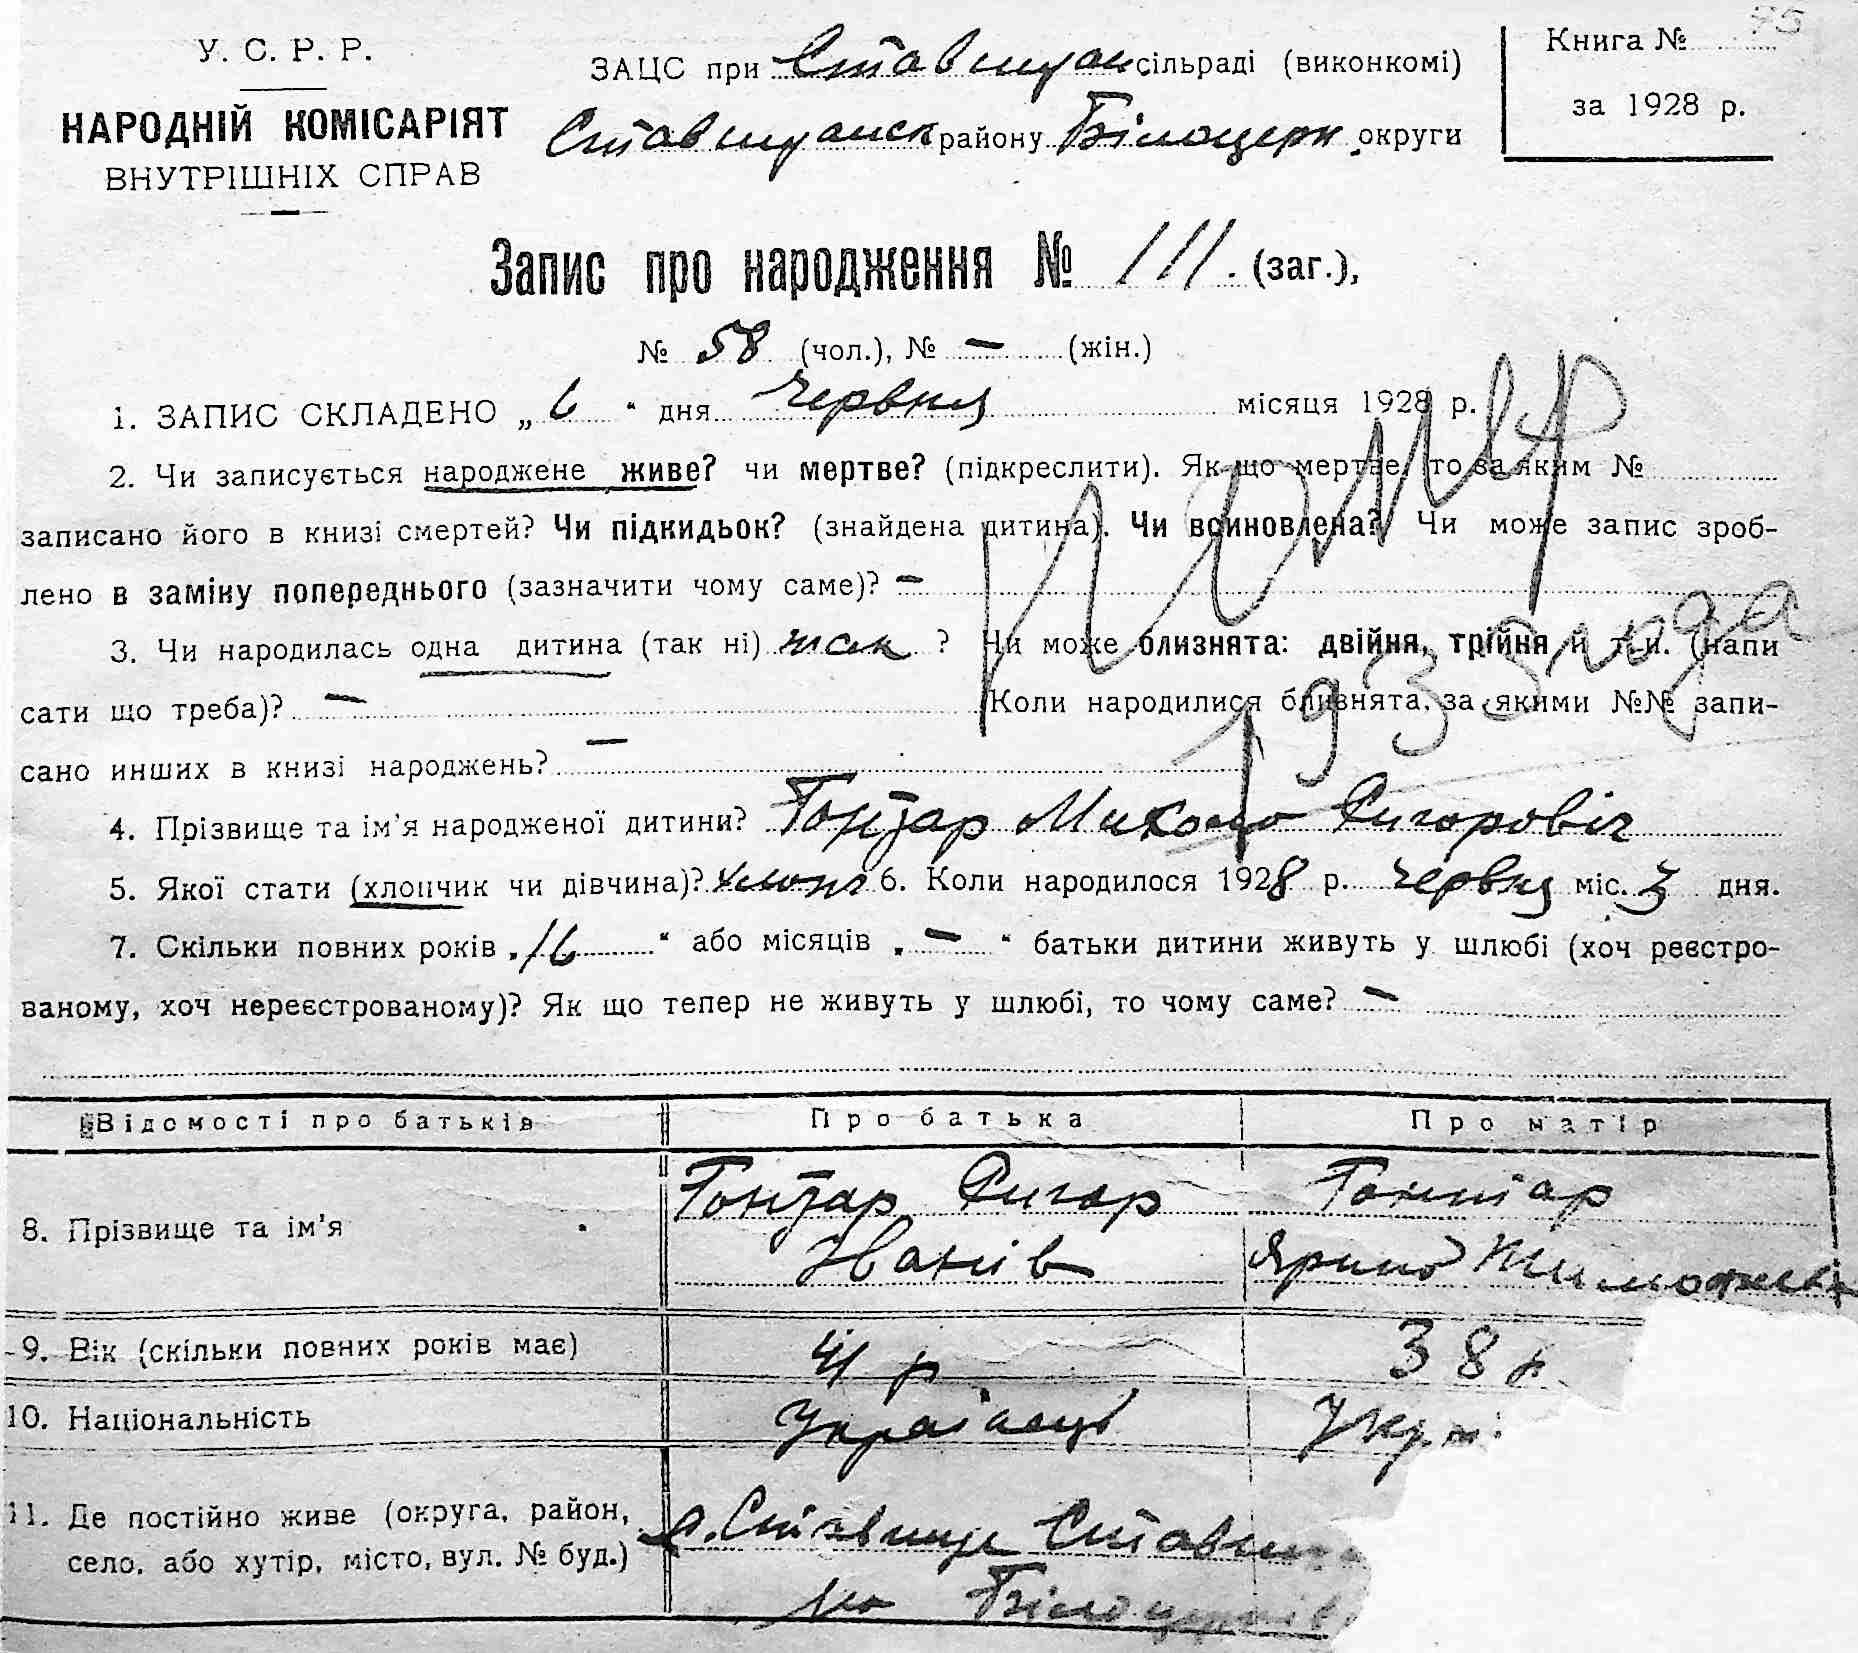 75
У. С. Р. Р.
НАРОДНІЙ КОМІСАРІЯТ
ВНУТРІШНІХ СПРАВ
ЗАЦС при Ставищан сільраді (виконкомі)
Ставищанск району Білоцерк. округи
Книга №
за 1928 р.
Запис про народження № 111. (заг.),
№ 58 (чол.), № — (жін.)
1. ЗАПИС СКЛАДЕНО „ 6 “ дня Червня місяця 1928 р.
2. Чи записується народжене живе? чи мертве? (підкреслити). Як що мертве, то за яким №
записано його в книзі смертей? Чи підкидьок? (знайдена дитина). Чи всиновлена? Чи може запис зроб-
лено в заміну попереднього (зазначити чому саме)? —
помер
1933 года
3. Чи народилась одна дитина (так ні) так ? Чи може близнята: двійня, трійня и т. и. (напи
сати що треба)? — Коли народилися близнята, за якими №№ запи-
сано инших в книзі народжень? —
4. Прізвище та ім'я народженої дитини? Гонтар Микола Григоровіч
5. Якої стати (хлопчик чи дівчина)? хлопч 6. Коли народилося 1928 р. Червня міс. 3 дня.
7. Скільки повних років „ 16 “ або місяців „ — “ батьки дитини живуть у шлюбі (хоч реєстро-
ваному, хоч нереєстрованому)? Як що тепер не живуть у шлюбі, то чому саме? —
Відомості про батьків Про батька Про матір
8. Прізвище та ім'я
Гонтар Григор Гонтар
Іванів Ярина
9. Вік (скільки повних років має) 41 р 38 р.
10. Національність Українець Укр.
11. Де постійно живе (округа, район,
село, або хутір, місто, вул. № буд.)
с. Ставище Ставищ
Білоцерків